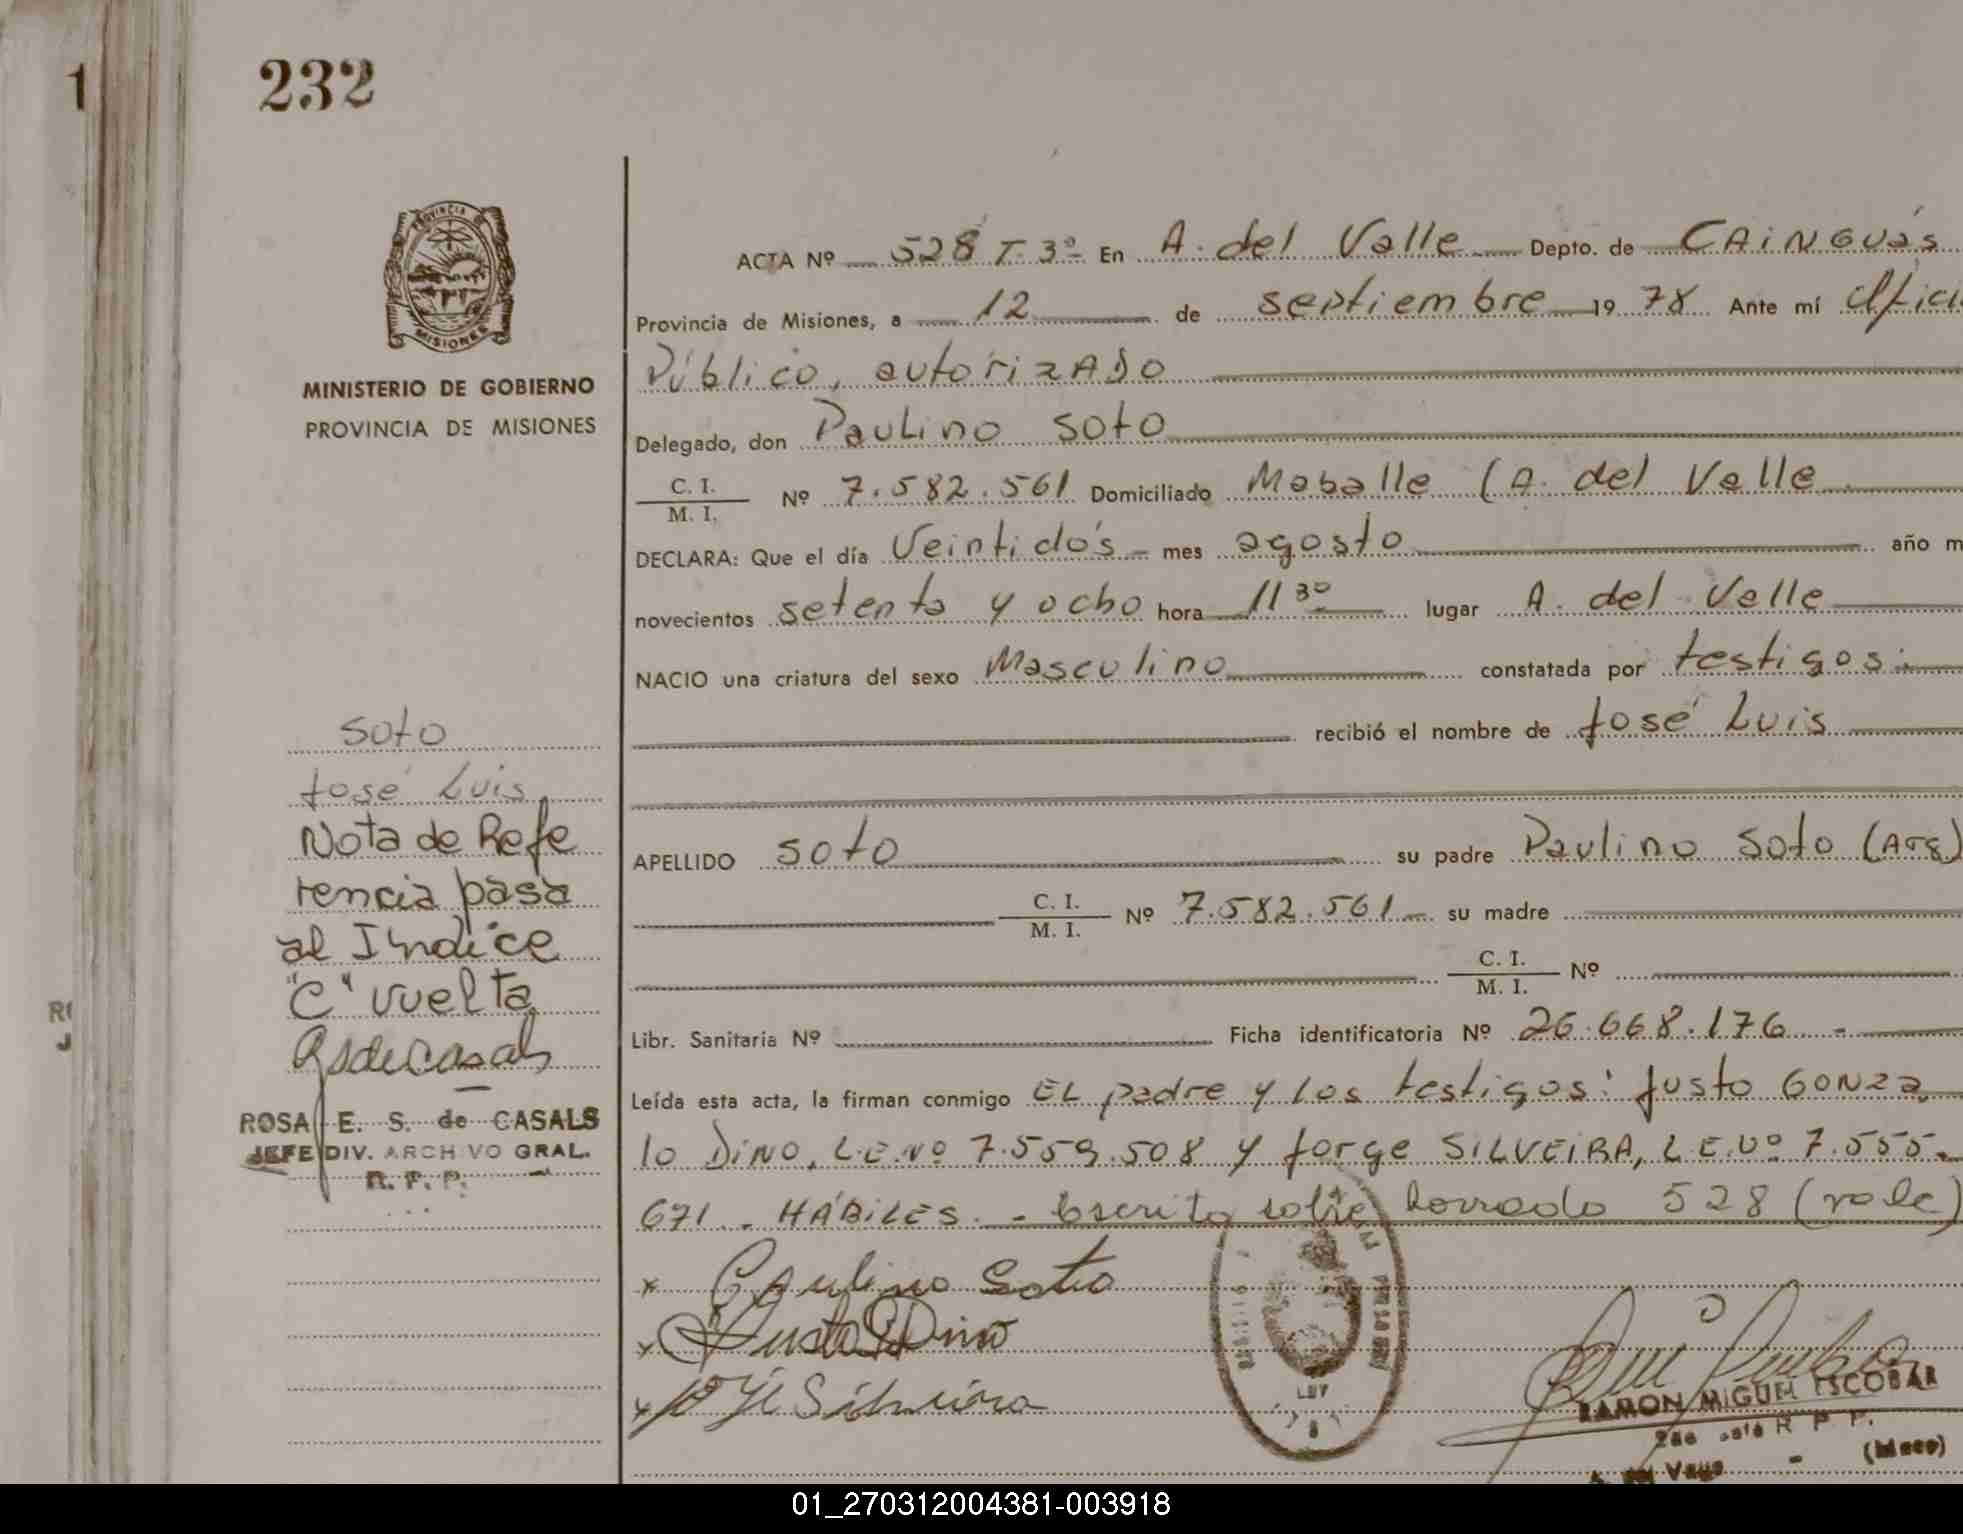 1
232
PROVINCIA D
MISIONES
MINISTERIO DE GOBIERNO
PROVINCIA DE MISIONES
ACTA Nº 528 T. 3º En A. del Valle Depto. de CAINGUás
Provincia de Misiones, a 12 de septiembre 19 78 Ante mí
Público, autorizADO
Delegado, don Paulino Soto
C. I.
M. I. Nº 7.582.561 Domiciliado Maballe (A. del Valle
DECLARA: Que el día Veintidós mes agosto año m
novecientos setenta y ocho hora 11 30 lugar A. del Valle
NACIO una criatura del sexo Masculino constatada por testigos:
recibió el nombre de José Luis
APELLIDO Soto su padre Paulino Soto (Arg)
C. I.
M. I. Nº 7.582.561 su madre
C. I.
M. I. Nº
Libr. Sanitaria Nº Ficha identificatoria Nº 26.668.176 -
Leída esta acta, la firman conmigo EL padre y los testigos: Justo GONZA
lo DINO, L.E.Nº 7.559.508 y Jorge SILVEIRA, L.E.Nº 7.555.
671. HÁBILES. - Escrito sobre borrado 528 (vale)
x Paulino Soto
x Justo G Dino
x Silveira
Soto
José Luis
Nota de Refe
rencia pasa
al Indice
"C" vuelta
RSdeCasals
ROSA E. S. de CASALS
JEFE DIV. ARCHIVO GRAL.
R. P. P.
RAMON MIGUEL ESCOBAR
R P P.
01_270312004381-003918